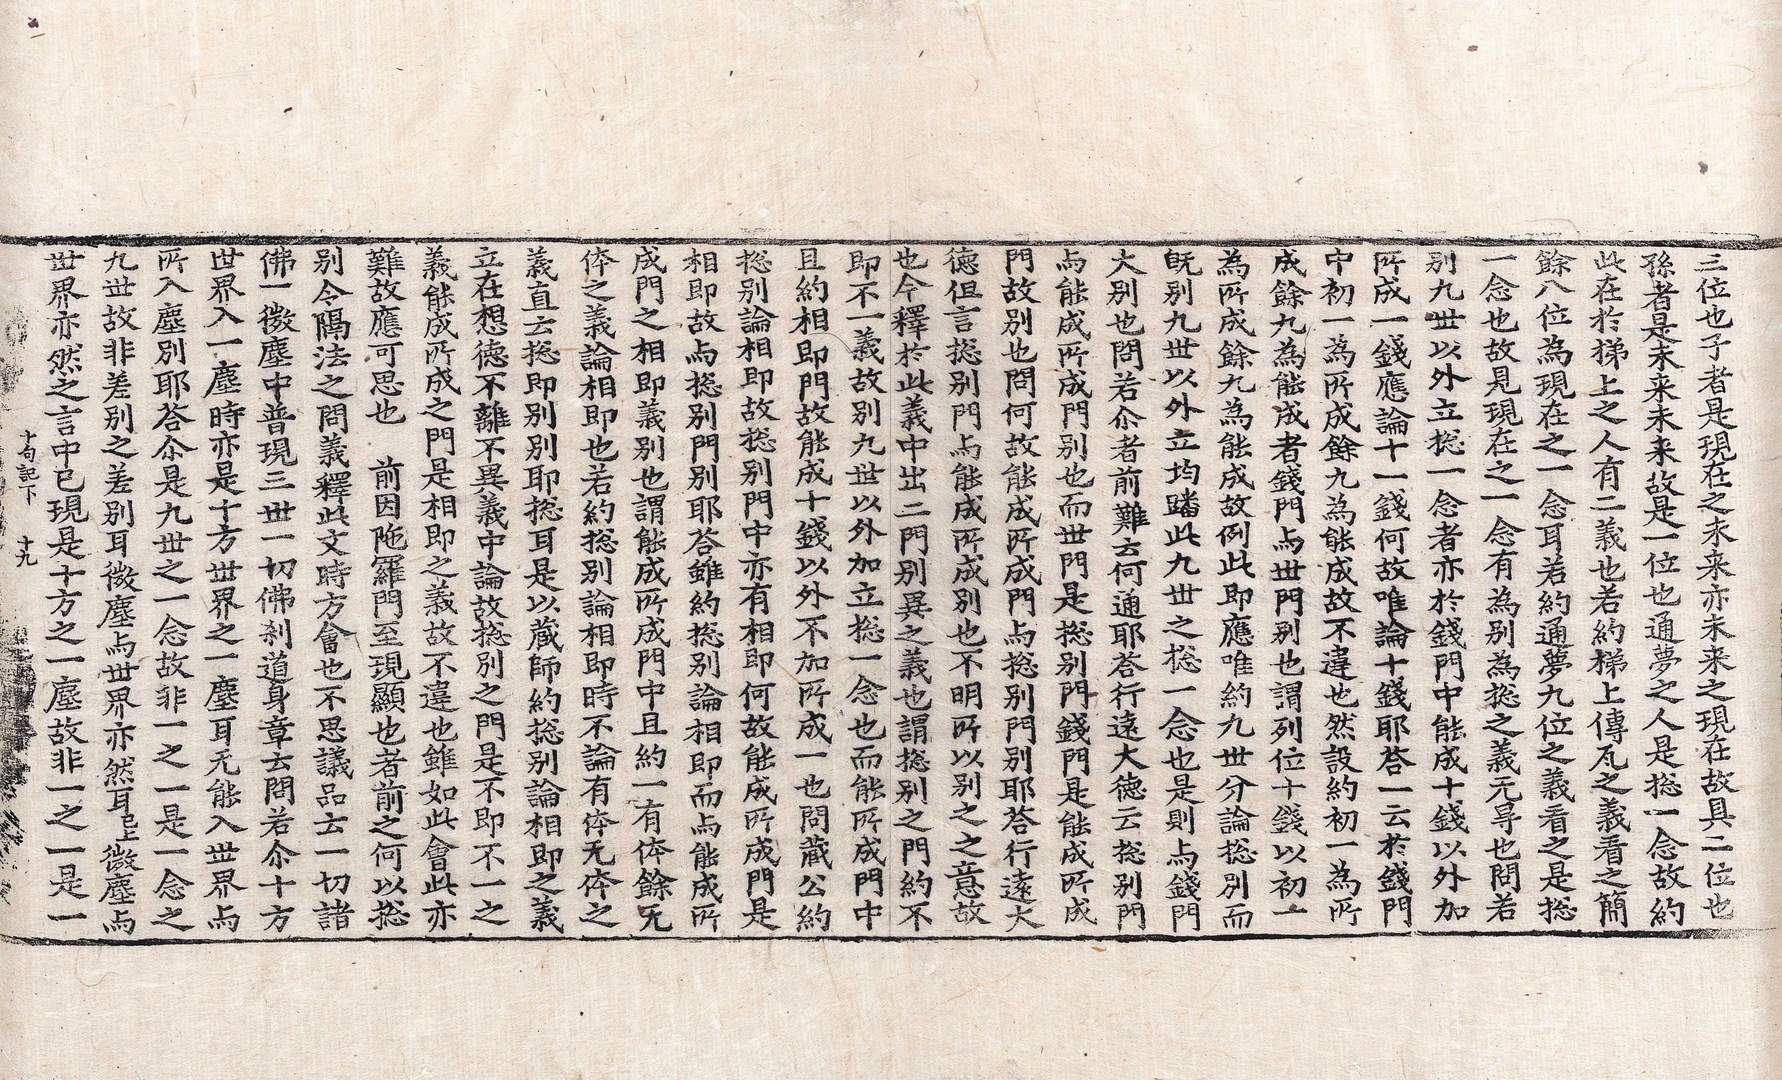 三位也子者是現在之未来亦未来之現在故具二位也
孫者是未来未来故是一位也通夢之人是捴一念故約
此在於梯上之人有二義也若約梯上傳瓦之義看之簡
餘八位為現在之一念耳若約通夢九位之義看之是捴
一念也故見現在之一念有為別為捴之義无㝵也問若
別九世以外立捴一念者亦於錢門中能成十錢以外加
所成一錢應論十一錢何故唯論十錢耶荅一云於錢門
中初一為所成餘九為能成故不違也然設約初一為所
成餘九為能成者錢門与世門別也謂列位十錢以初一
為所成餘九為能成故例此即應唯約九世分論捴別而
既別九世以外立均踏此九世之捴一念也是則与錢門
大別也問若尒者前難云何通耶荅行遠大德云捴別門
与能成所成門別也而世門是捴別門錢門是能成所成
門故別也問何故能成所成門与捴別門別耶荅行遠大
德但言捴別門与能成所成別也不明所以別之之意故
也今釋於此義中出二門別異之義也謂捴別之門約不
即不一義故別九世以外加立捴一念也而能所成門中
且約相即門故能成十錢以外不加所成一也問藏公約
捴別論相即故捴別門中亦有相即何故能成所成門是
相即故与捴別門別耶荅雖約捴別論相即而与能成所
成門之相即義別也謂能成所成門中且約一有体餘无
体之義論相即也若約捴別論相即時不論有体无体之
義直云捴即別別耶捴耳是以蔵師約捴別論相即之義
立在想德不離不異義中論故捴別之門是不即不一之
義能成所成之門是相即之義故不違也雖如此會此亦
難故應可思也　前因陁羅門至現顯也者前之何以捴
別令隔法之問義釋此文時方會也不思議品云一切諸
佛一微塵中普現三世一切佛刹道身章云問若尒十方
世界入一塵時亦是十方世界之一塵耳无能入世界与
所入塵別耶荅尒是九世之一念故非一之一是一念之
九世故非差別之差別耳微塵与世界亦然耳已上微塵与
世界亦然之言中已現是十方之一塵故非一之一是一
十句記下　十九